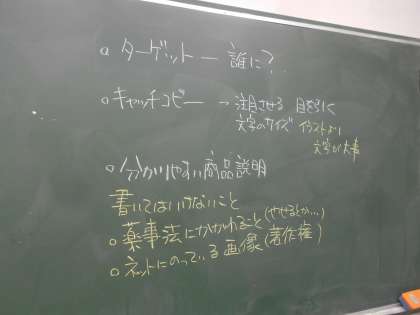 ○ ターゲット ― 誰に?
○ キャッチコピー → 注目させる 目を引く
文字のサイズ イラストより
文字が大事
○ 分かりやすい商品説明
書いてはいけないこと
○ 薬事法にかかわること(やせるとか…)
○ ネットにのっている画像(著作権)